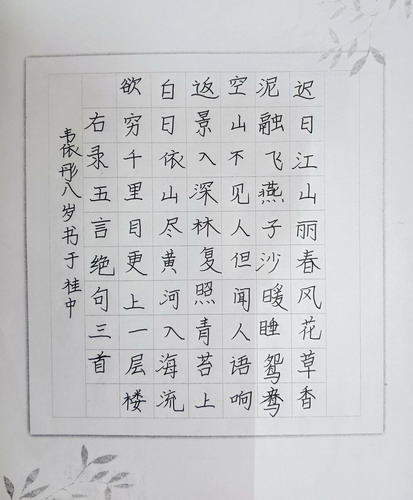 迟日江山丽春风花草香
泥融飞燕子沙暖睡鸳鸯
空山不见人但闻人语响
返景入深林复照青苔上
白日依山尽黄河入海流
欲穷千里目更上一层楼
右录五言绝句三首
韦依彤八岁书于桂中